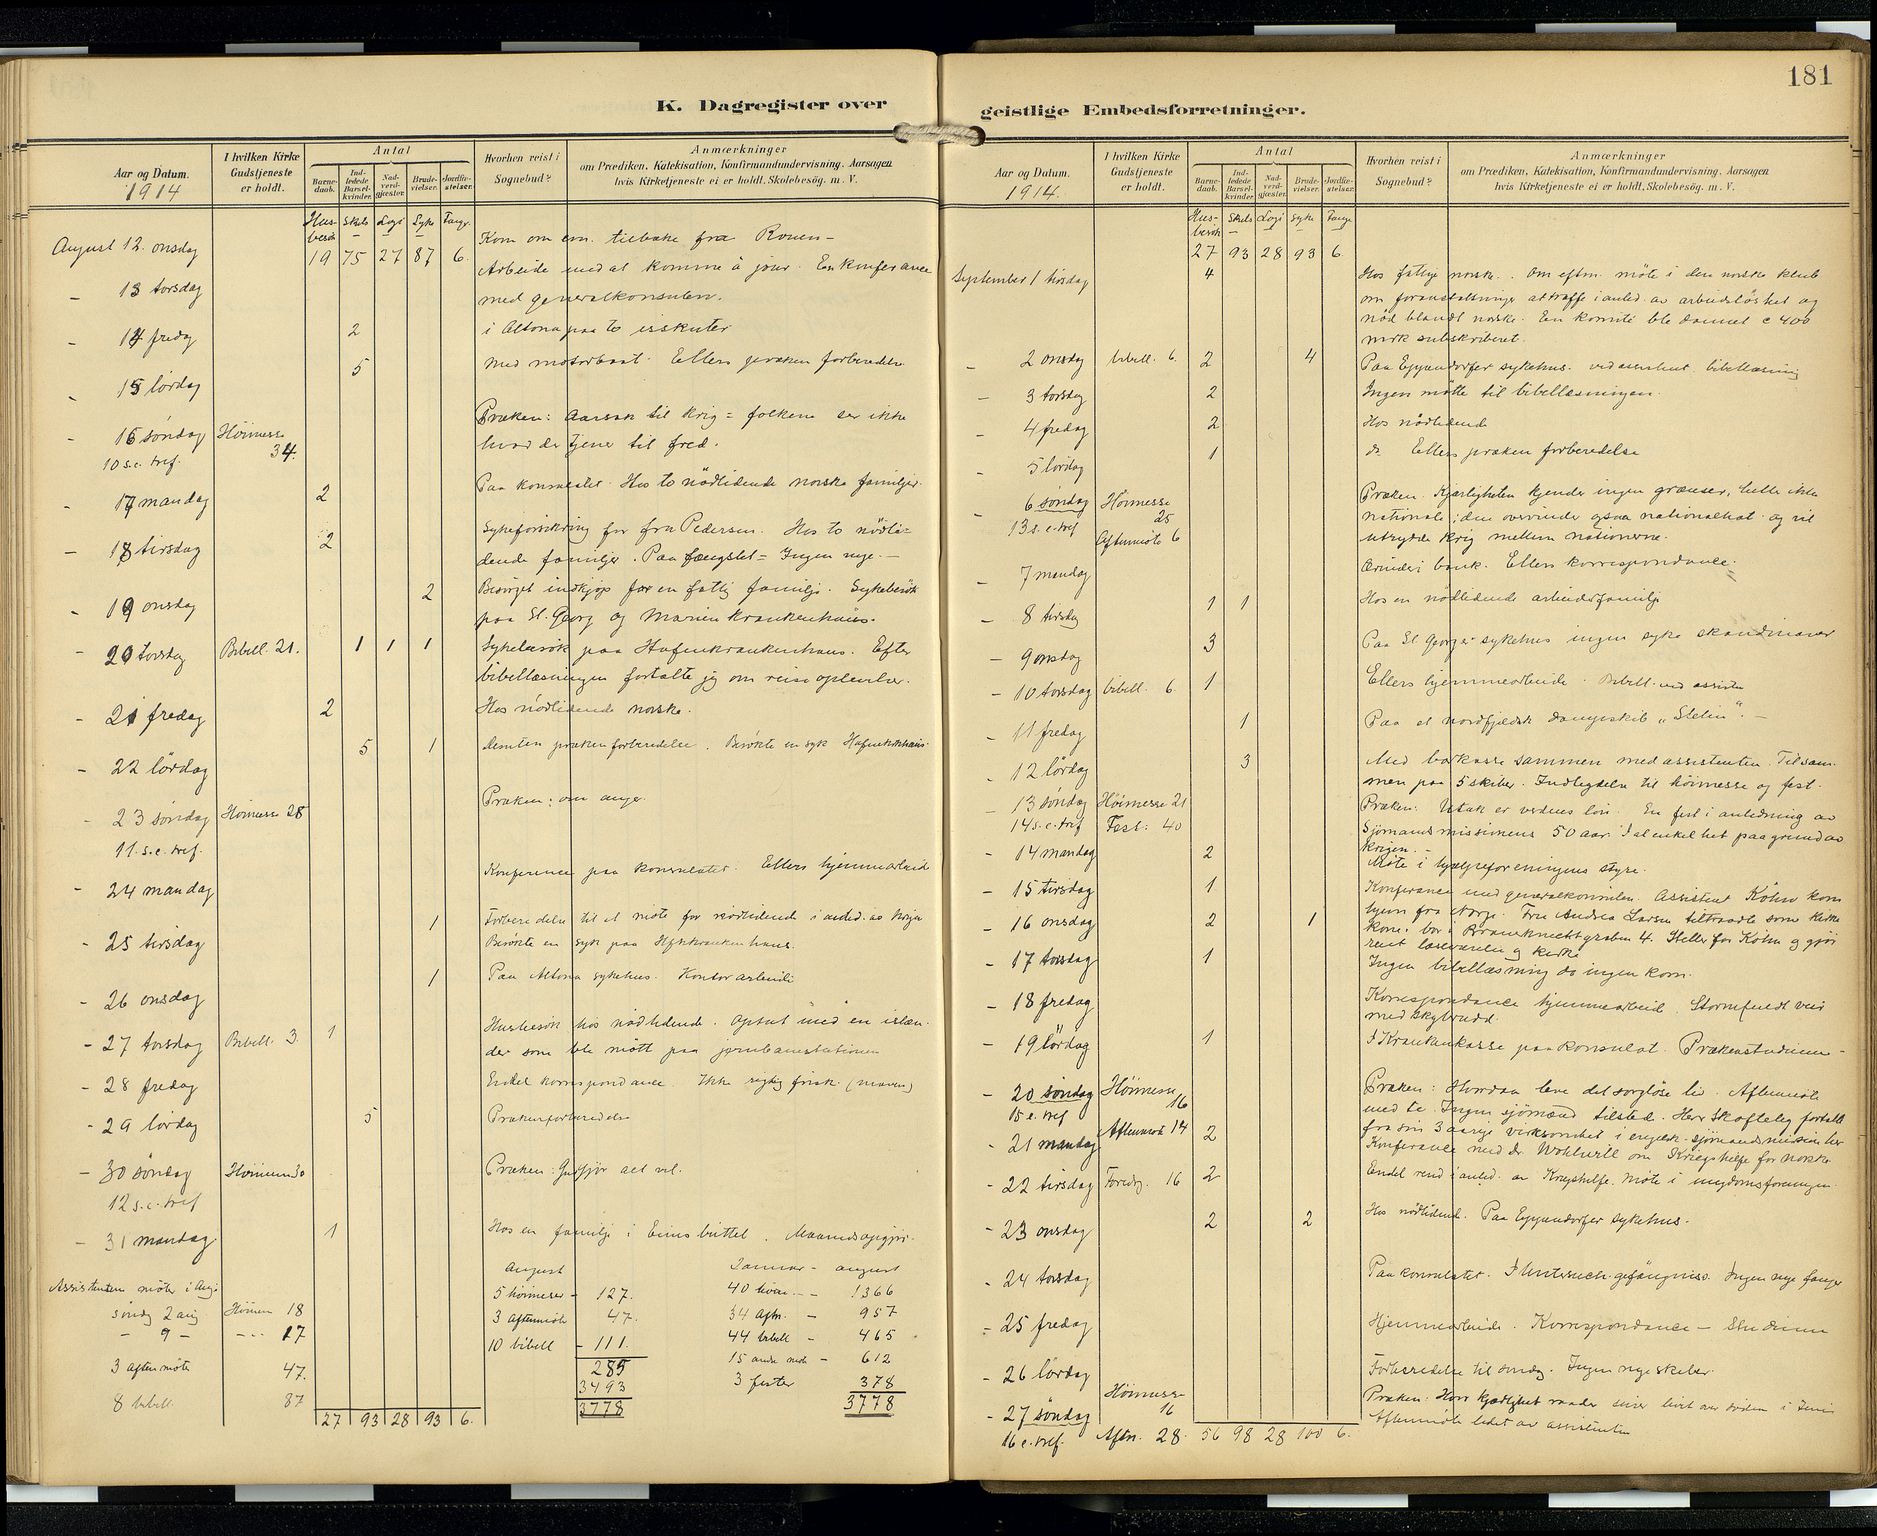 181
K. Dagregister over
Aar og Datum.
1914
I hvilken Kirke
Gudstjeneste
er holdt.
Antal
Barne-
daab.
Ind-
ledede
Barsel-
kvinder.
Nad-
verd-
gjester.
Brude-
vielser.
Jordfæ-
stelser.
Hvorhen reist i
Sognebud?
Anmærkninger
om Prædiken, Katekisation, Konfirmandundervisning, Aarsagen
hvis Kirketjeneste ei er holdt, Skolebesög, m. V.
Hus-
besøk Skibs Logi Syke Fange
19 75 27 87 6.
August 12. onsdag Kom om em. tilbake fra Rouen -
- 13 torsdag Arbeide med at komme à jour. En konferance
med generalkonsulen.
- 14 fredag 2 i Altona paa to isskuter
- 15 lørdag 5 Med motorbaat. Ellers præken forberedelse
- 16 søndag Høimesse
10 s.e. tref. 34.
Præken: Aarsak til krig = folkene ser ikke
hvad der tjener til fred.
- 17 mandag 2 Paa konsulatet. Hos to nødlidende norske familjer.
- 18 tirsdag 2 Sykeforsikring for fru Pedersen. Hos to nødli-
dende familjer. Paa fængslet = Ingen nye. -
- 19 onsdag 2 Besørget indkjøp for en fattig familje. Sykebesøk
paa St. Georg og Marienkrankenhaus.
- 20 torsdag Bibell. 21. 1 1 1 Sykebesøk paa Hafenkrankenhaus. Efter
bibellæsningen fortalte jeg om reiseoplevelser.
- 21 fredag 2 Hos nødlidende norske.
- 22 lørdag 5 1 præken forberedelse. Besøkte en syk
- 23 søndag Høimesse 28
11. s.e. tref.
Præken: om anger.
- 24 mandag Konference paa konsulatet. Ellers hjemmearbeid
- 25 tirsdag 1 Forberedelse til et møte for nødlidende i anled. av krigen
Besøkte en syk paa
- 26 onsdag 1 Paa Altona sykehus. Kontorarbeide
- 27 torsdag Bibell. 3. 1 Husbesøk hos nødlidende. Optat med en islæn-
der som ble møtt paa jernbanestationen
- 28 fredag Endel korrespondance. Ikke rigtig frisk. (maven)
- 29 lørdag 5 Prækenforberedelse
- 30 søndag Høimesse 30
12 s.e. tref
Præken: Gud gjør alt vel.
- 31 mandag 1 Hos en familje i Eimsbüttel. Maanedsopgjør.
Assistenten møter i Aug:
søndag 2 aug Høimesse 18
- 9 - - " - 17
3 Aftenmøte 47.
8 bibell. 87
27 93 28 93 6.
August
5 høimesser - 127.
3 Aftenmøte 47.
10 bibell - 111.
285
3493
3778
Januar - august
40 høim. - 1366
34 Aftn. - 957
44 bibell - 465
15 andre møte - 612
3 fester 378
3778
geistlige Embedsforretninger.
Aar og Datum.
1914.
I hvilken Kirke
Gudstjeneste
er holdt.
Antal
Barne-
daab.
Ind-
ledede
Barsel-
kvinder.
Nad-
verd-
gjester.
Brude-
vielser.
Jordfæ-
stelser.
Hvorhen reist i
Sognebud?
Anmærkninger
om Prædiken, Katekisation, Konfirmandundervisning, Aarsagen
hvis Kirketjeneste ei er holdt, Skolebesög, m. V.
Hus-
besøk Skibs Logi Syke Fange
27 93 28 93 6
September 1 tirsdag 4 Hos fattige norske. Om eftm. møte i den norske klub
om foranstaltninger at træffe i anled. av arbeidsløshet og
nød blandt norske. En komité ble dannet c 400
mark subskriberet.
- 2 onsdag bibell. 6. 2 4 Paa Eppendorfer sykehus. ved assistent. bibellæsning
- 3 torsdag 2 Ingen møtte til bibellæsningen.
- 4 fredag 2 Hos nødlidende
- 5 lørdag 1 do Ellers præken forberedelse
- 6 søndag Høimesse
13 s.e. tref 25
Aftenmøte 6
Præken: Kjærligheten kjender ingen grænser, heller ikke
nationale; den overvinder ogsaa nationalhat og vil
utrydde krig mellem nationerne.
- 7 mandag Ærinder i bank. Ellers korrespondance.
- 8 tirsdag 1 1 Hos en nødlidende arbeiderfamilje
- 9 onsdag 3 Paa St. Georgs sykehus ingen syke skandinaver
- 10 torsdag bibell. 6. 1 Ellers hjemmearbeide. Bibell. ved assisten
- 11 fredag 1 Paa et nordfjordsk dampskib „Stetin“. -
- 12 lørdag 3 Med barkasse sammen med assistenten. Tilsam-
men paa 5 skiber. Indbydelse til høimesse og fest.
- 13 søndag Høimesse 21
14 s.e. tref Fest: 40
Præken: Utak er verdens løn. En fest i anledning av
Sjømandsmissionens 50 aar. I al enkelhet paa grund av
krigen. -
- 14 mandag 2 Møte i hjælpeforeningens styre.
- 15 tirsdag 1 Konferance med generalkonsulen. Assistent Køhn kom
hjem fra Norge. Fru Andrea Larsen tiltraadte som kirke
- 16 onsdag 2 1 kone: bor i Brauerknechtgraben 4. Steller for Køhn og gjør
rent læseværelse og kirke
- 17 torsdag 1 Ingen bibellæsning da ingen kom.
- 18 fredag Korrespondance hjemmearbeid. Stormfuldt veir
med skybrudd.
- 19 lørdag 1 I Krankenkasse paa konsulat. Prækenstudium -
- 20 søndag Høimesse
15 e. tref 16
Aftenmøte 14
Præken: Hvordan leve det sorgløse liv. Aftenmøte
med te. Ingen sjømænd tilsted. Herr fortalt
fra sin 3 aarige virksomhet i engelsk sjømandsmission her
- 21 mandag 2 Konferance med dr. Wohlwill om Kriegshilfe for norske
- 22 tirsdag Foredr. 16 2 Endel rend i anled. av Kriegshilfe. Møte i ungdomsforeningen.
- 23 onsdag 2 2 Hos nødlidend. Paa Eppendorfer sykehus.
- 24 torsdag Paa konsulatet. I Untersuch.gefängniss. Ingen nye fanger
- 25 fredag Hjemmearbeide. Korrespondance - Studium
- 26 lørdag Forberedelse til søndag. Ingen nye skiber.
- 27 søndag Høimesse
16 e. tref. 16
Aftn. 28.
Præken: Hvor kjærlighet raader seirer livet over døden i
Aftenmøte ledet av assistenten
56 98 28 100 6.